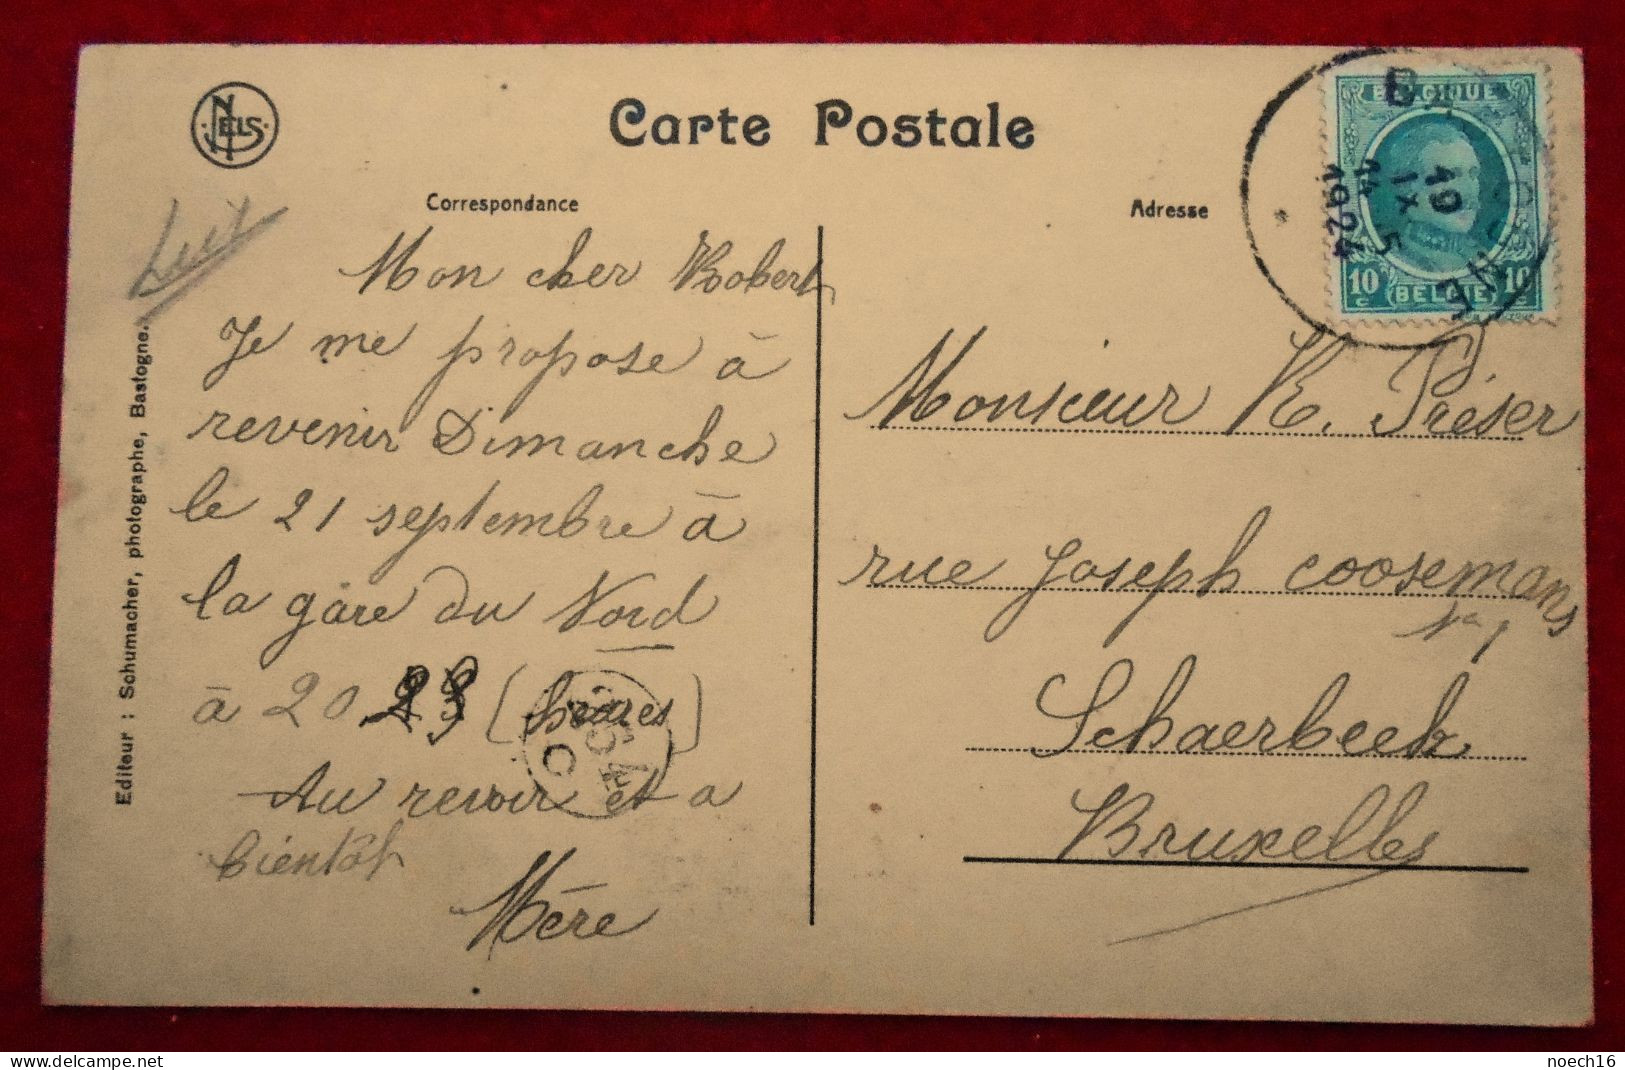 NELS
Carte Postale
Correspondance
Adresse
BELGIQUE
10 c
10 c
BELGIË
19
IX
14 5
1924
Mon cher Robert
Je me propose à
revenir Dimanche
le 21 septembre à
la gare du Nord
à 20 23 (heures)
Au revoir et a
bientôt
Mère
Monsieur R. Préser
rue Joseph Coosemans
Schaerbeek
Bruxelles
Editeur : Schumacher, photographe, Bastogne.
noech16